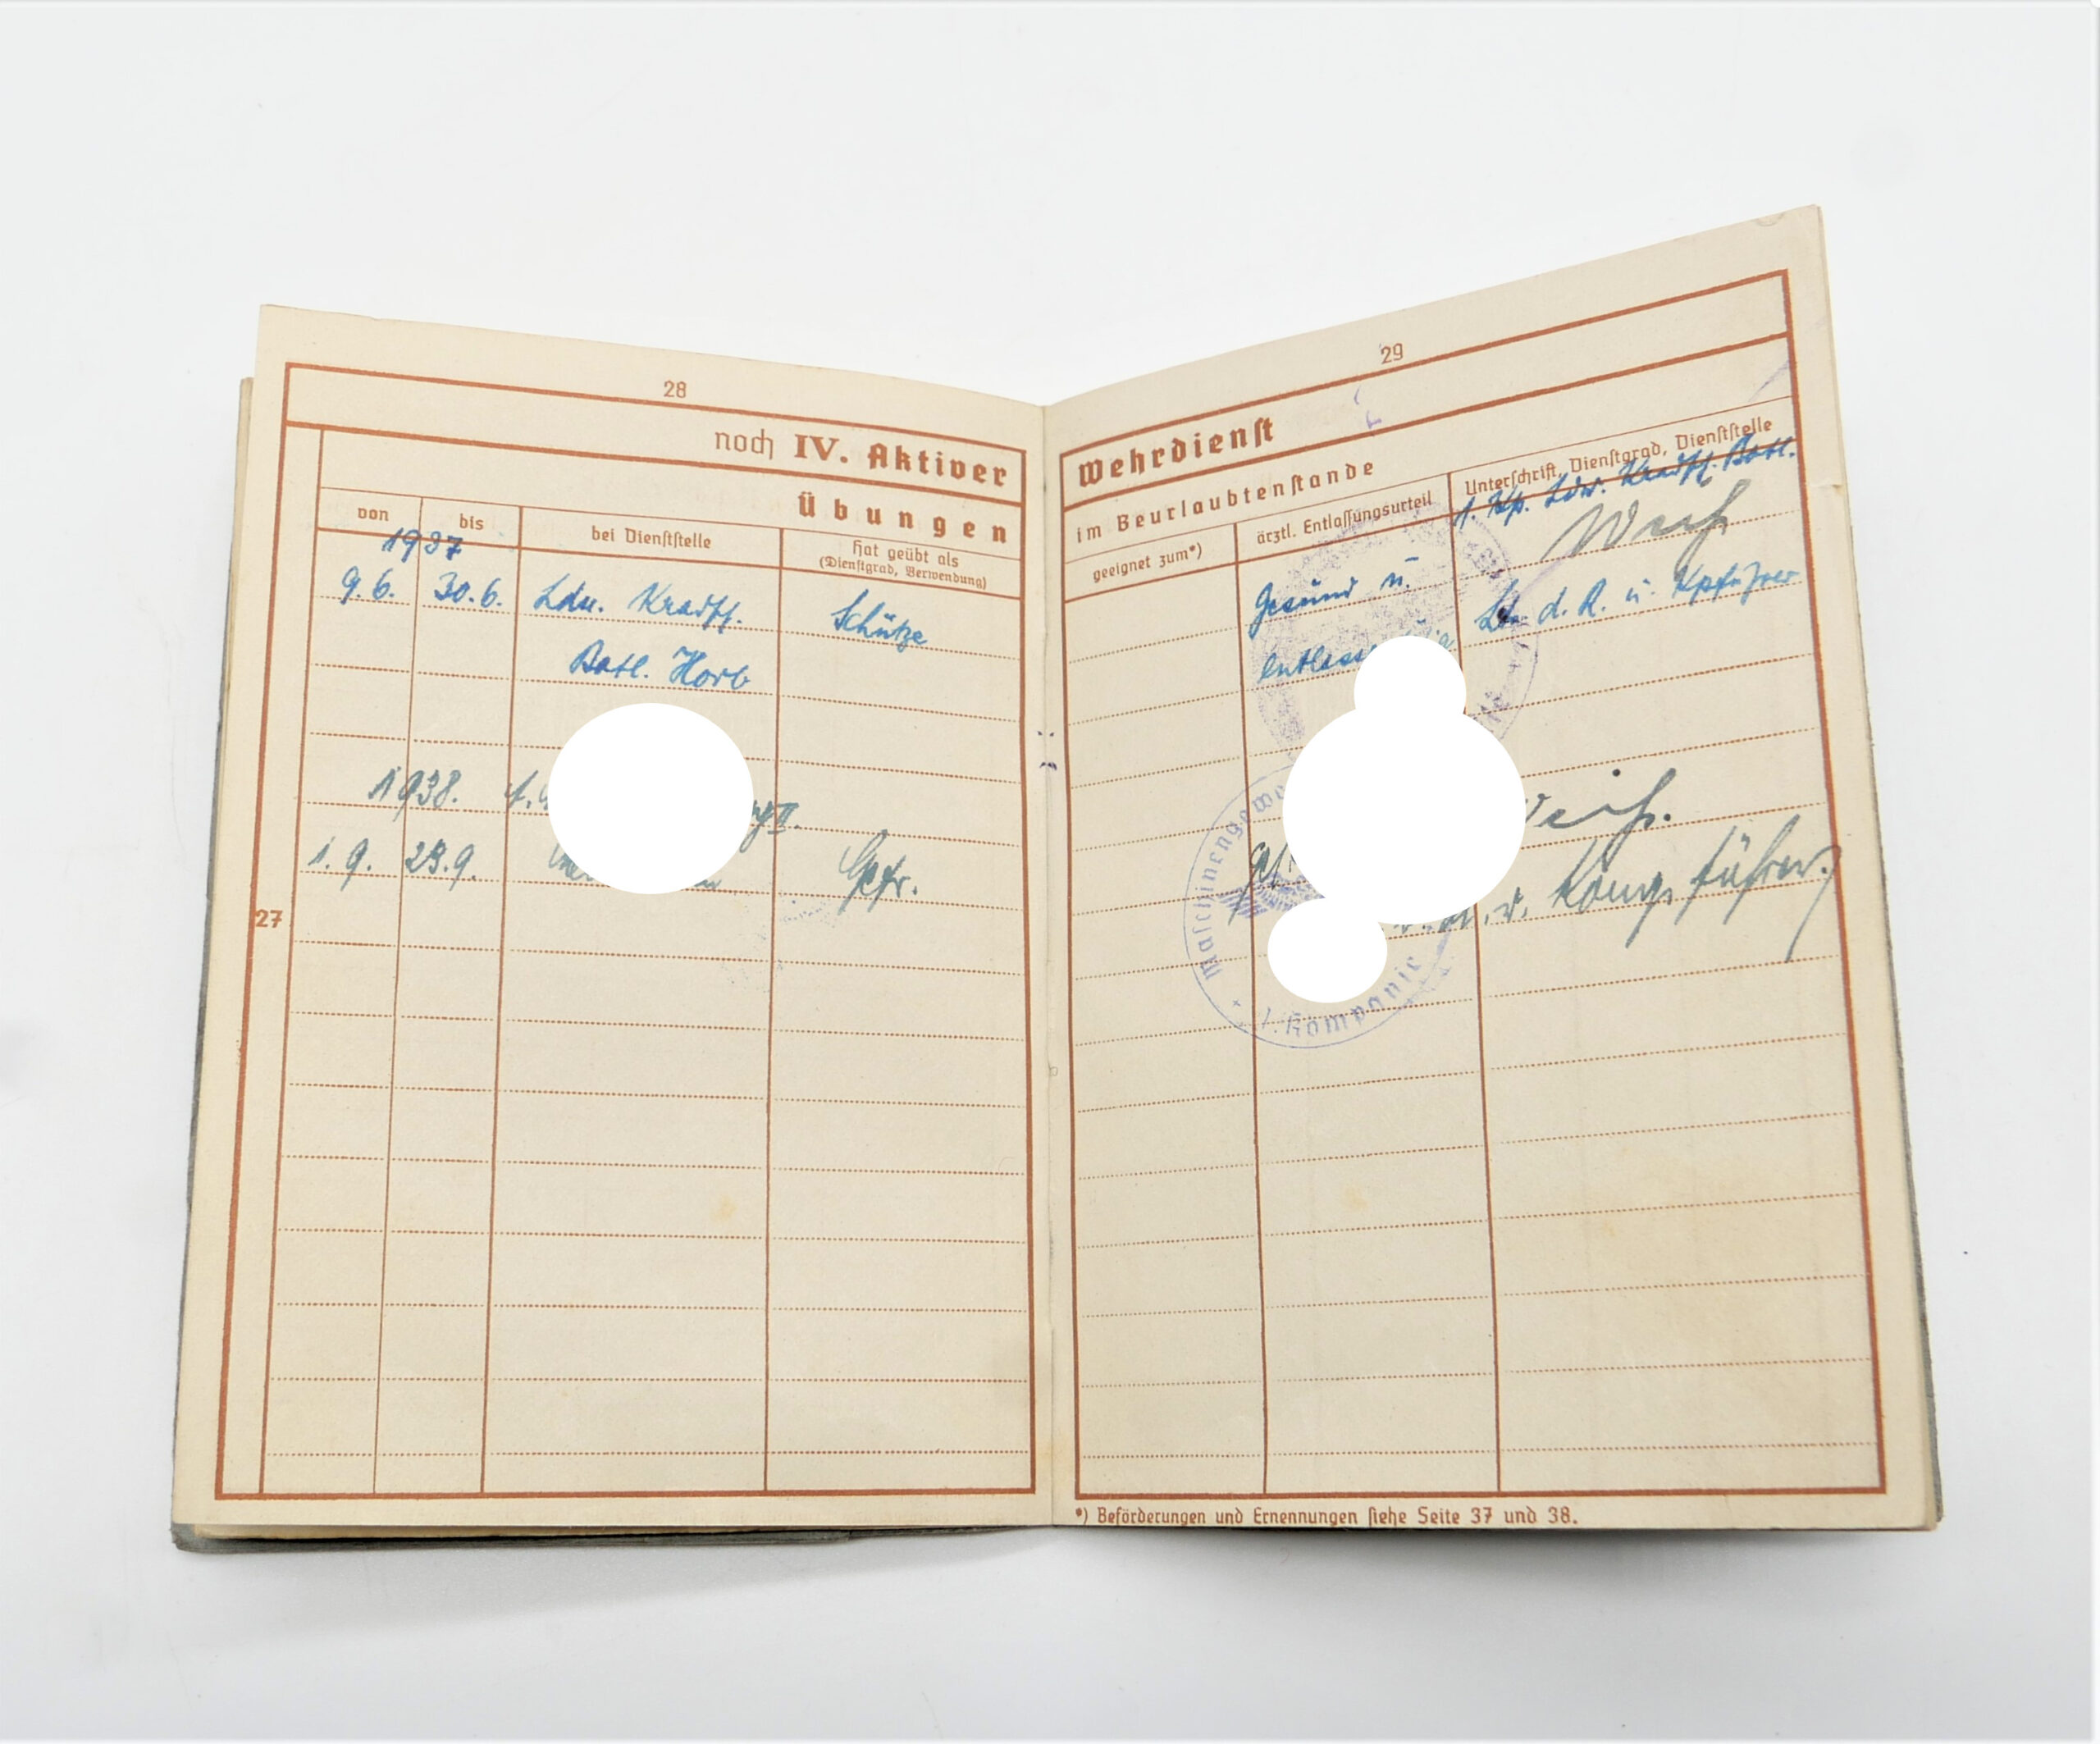 28
noch IV. Aktiver
Übungen
von
bis
bei Dienststelle
hat geübt als
(Dienstgrad, Verwendung)
1937
9.6. 30.6. Ldw. Kradsch. Schütze
Batl. Horb
1938.
1.9. 23.9. Gefr.
27
29
Wehrdienst
im Beurlaubtenstande
geeignet zum*)
ärztl. Entlassungsurteil
Unterschrift, Dienstgrad, Dienststelle
1. Kp. Ldw. Kradsch. Batl.
Gesund u. Lt. d. R. u. Kpführer
Maschinengewe
1. Kompanie
führer.
*) Beförderungen und Ernennungen siehe Seite 37 und 38.